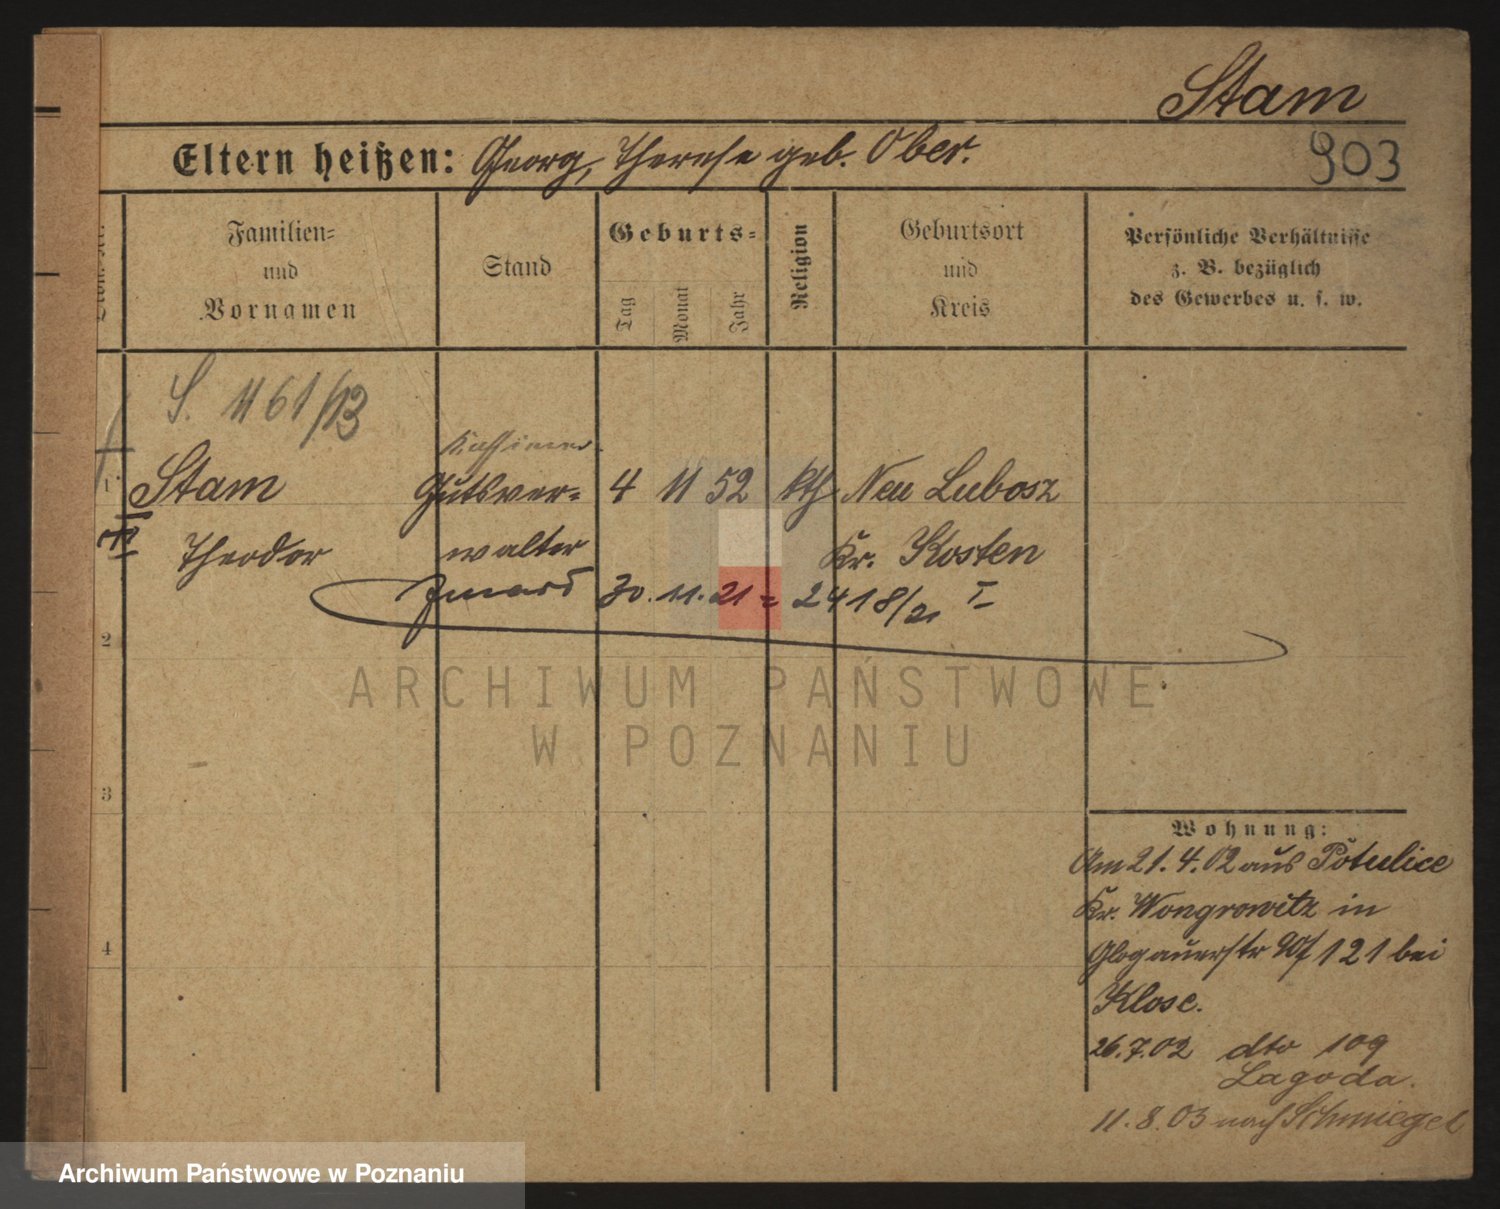 Stam
903
Eltern heißen: Georg, Therese geb. Ober.
Familien=
und
Vornamen
Stand
Geburts=
Tag
Monat
Jahr
Religion
Geburtsort
und
Kreis
Persönliche Verhältnisse
z. B. bezüglich
des Gewerbes u. s. w.
S. 1161/13
1 Stam Gutsver= 4 11 52 kth Neu Lubosz
Theodor walter Kr. Kosten
30. 11. 21 = 2418/21 I
2
3
4
Wohnung:
Am 21. 4. 02 aus Potulice
Kr. Wongrowitz in
Glogauerstr 121 bei
Klose.
26. 7. 02 dto 109
Lagoda.
11. 8. 03 nach Schmiegel
ARCHIWUM PAŃSTWOWE
W POZNANIU
Archiwum Państwowe w Poznaniu